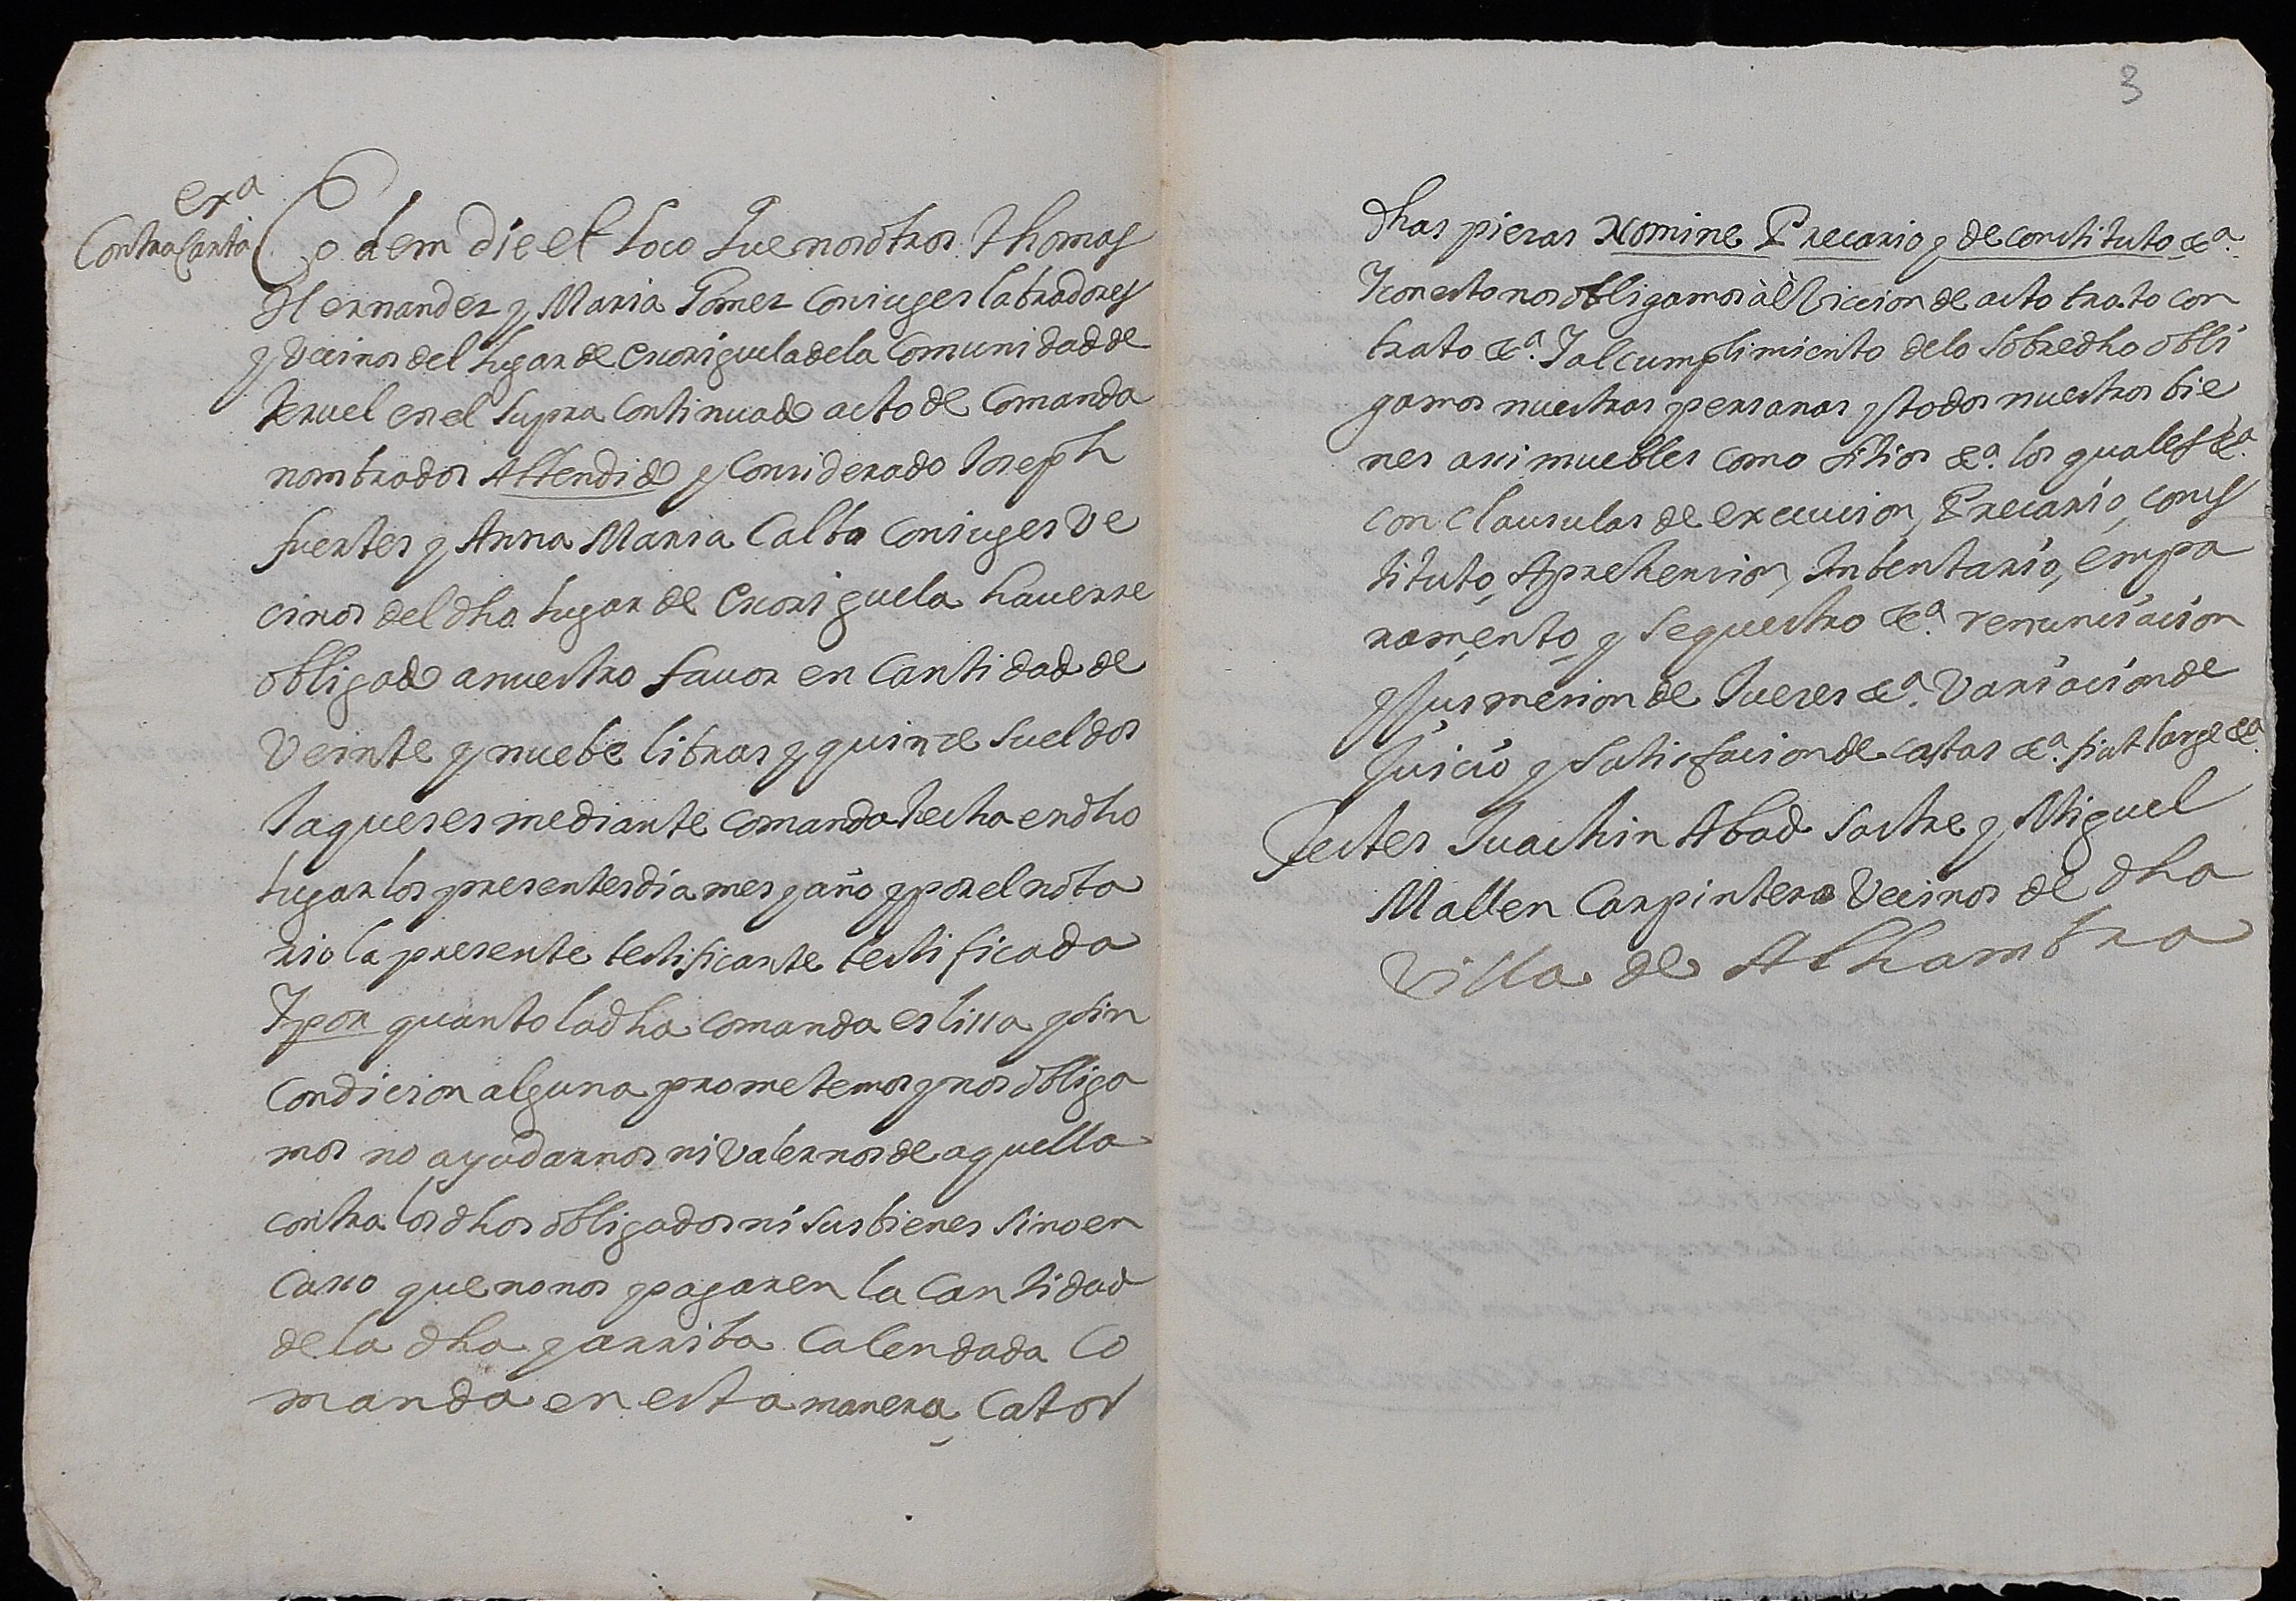 exª
Contra Carta
Eodem die et loco Que nosotros Thomas
Hernandez y Maria Gomez coniuges labradores
y Vecinos del lugar de Oxoriguela dela Comunidad de
Teruel en el supra continuado acto de Comanda
nombrados Attendido y Considerado Joseph
fuertes y Anna Maria Calbo coniuges Ve
cinos del dho lugar de Oxoriguela hauerse
obligado a nuestro fauor en Cantidad de
Veinte y nuebe libras y quince sueldos
Jaqueses mediante comanda hecha en dho
lugar los presentes dia mes y año y por el nota
rio la presente testificante testificada
Y por quanto la dha comanda es lissa y sin
condicion alguna prometemos y nos obliga
mos no ayudarnos ni Valernos de aquella
contra los dhos obligados ni sus bienes sino en
Casso que no nos pagaren la Cantidad
de la dha y arriba Calendada Co
manda en esta manera Cator
3
dhas piezas Nomine Precario y de constituto &ª.
Y con esto nos obligamos à Eviccion de acto trato con
trato &ª. Y al cumplimiento delo sobredho obli
gamos nuestras personas y todos nuestros bie
nes assi muebles como sitios &ª. los quales &ª.
con clausulas de execucion, Precario, cons
tituto, Aprehension, Inbentario, empa
ramento, y sequestro &ª. renunciacion
y susmesion de Jueces &ª. Variacion de
Juicio y satisfacion de costas &ª. fiat large &ª.
Testes Juachin Abad sastre y Miguel
Mallen Carpintero Vecinos de dha
Villa de Alhambra